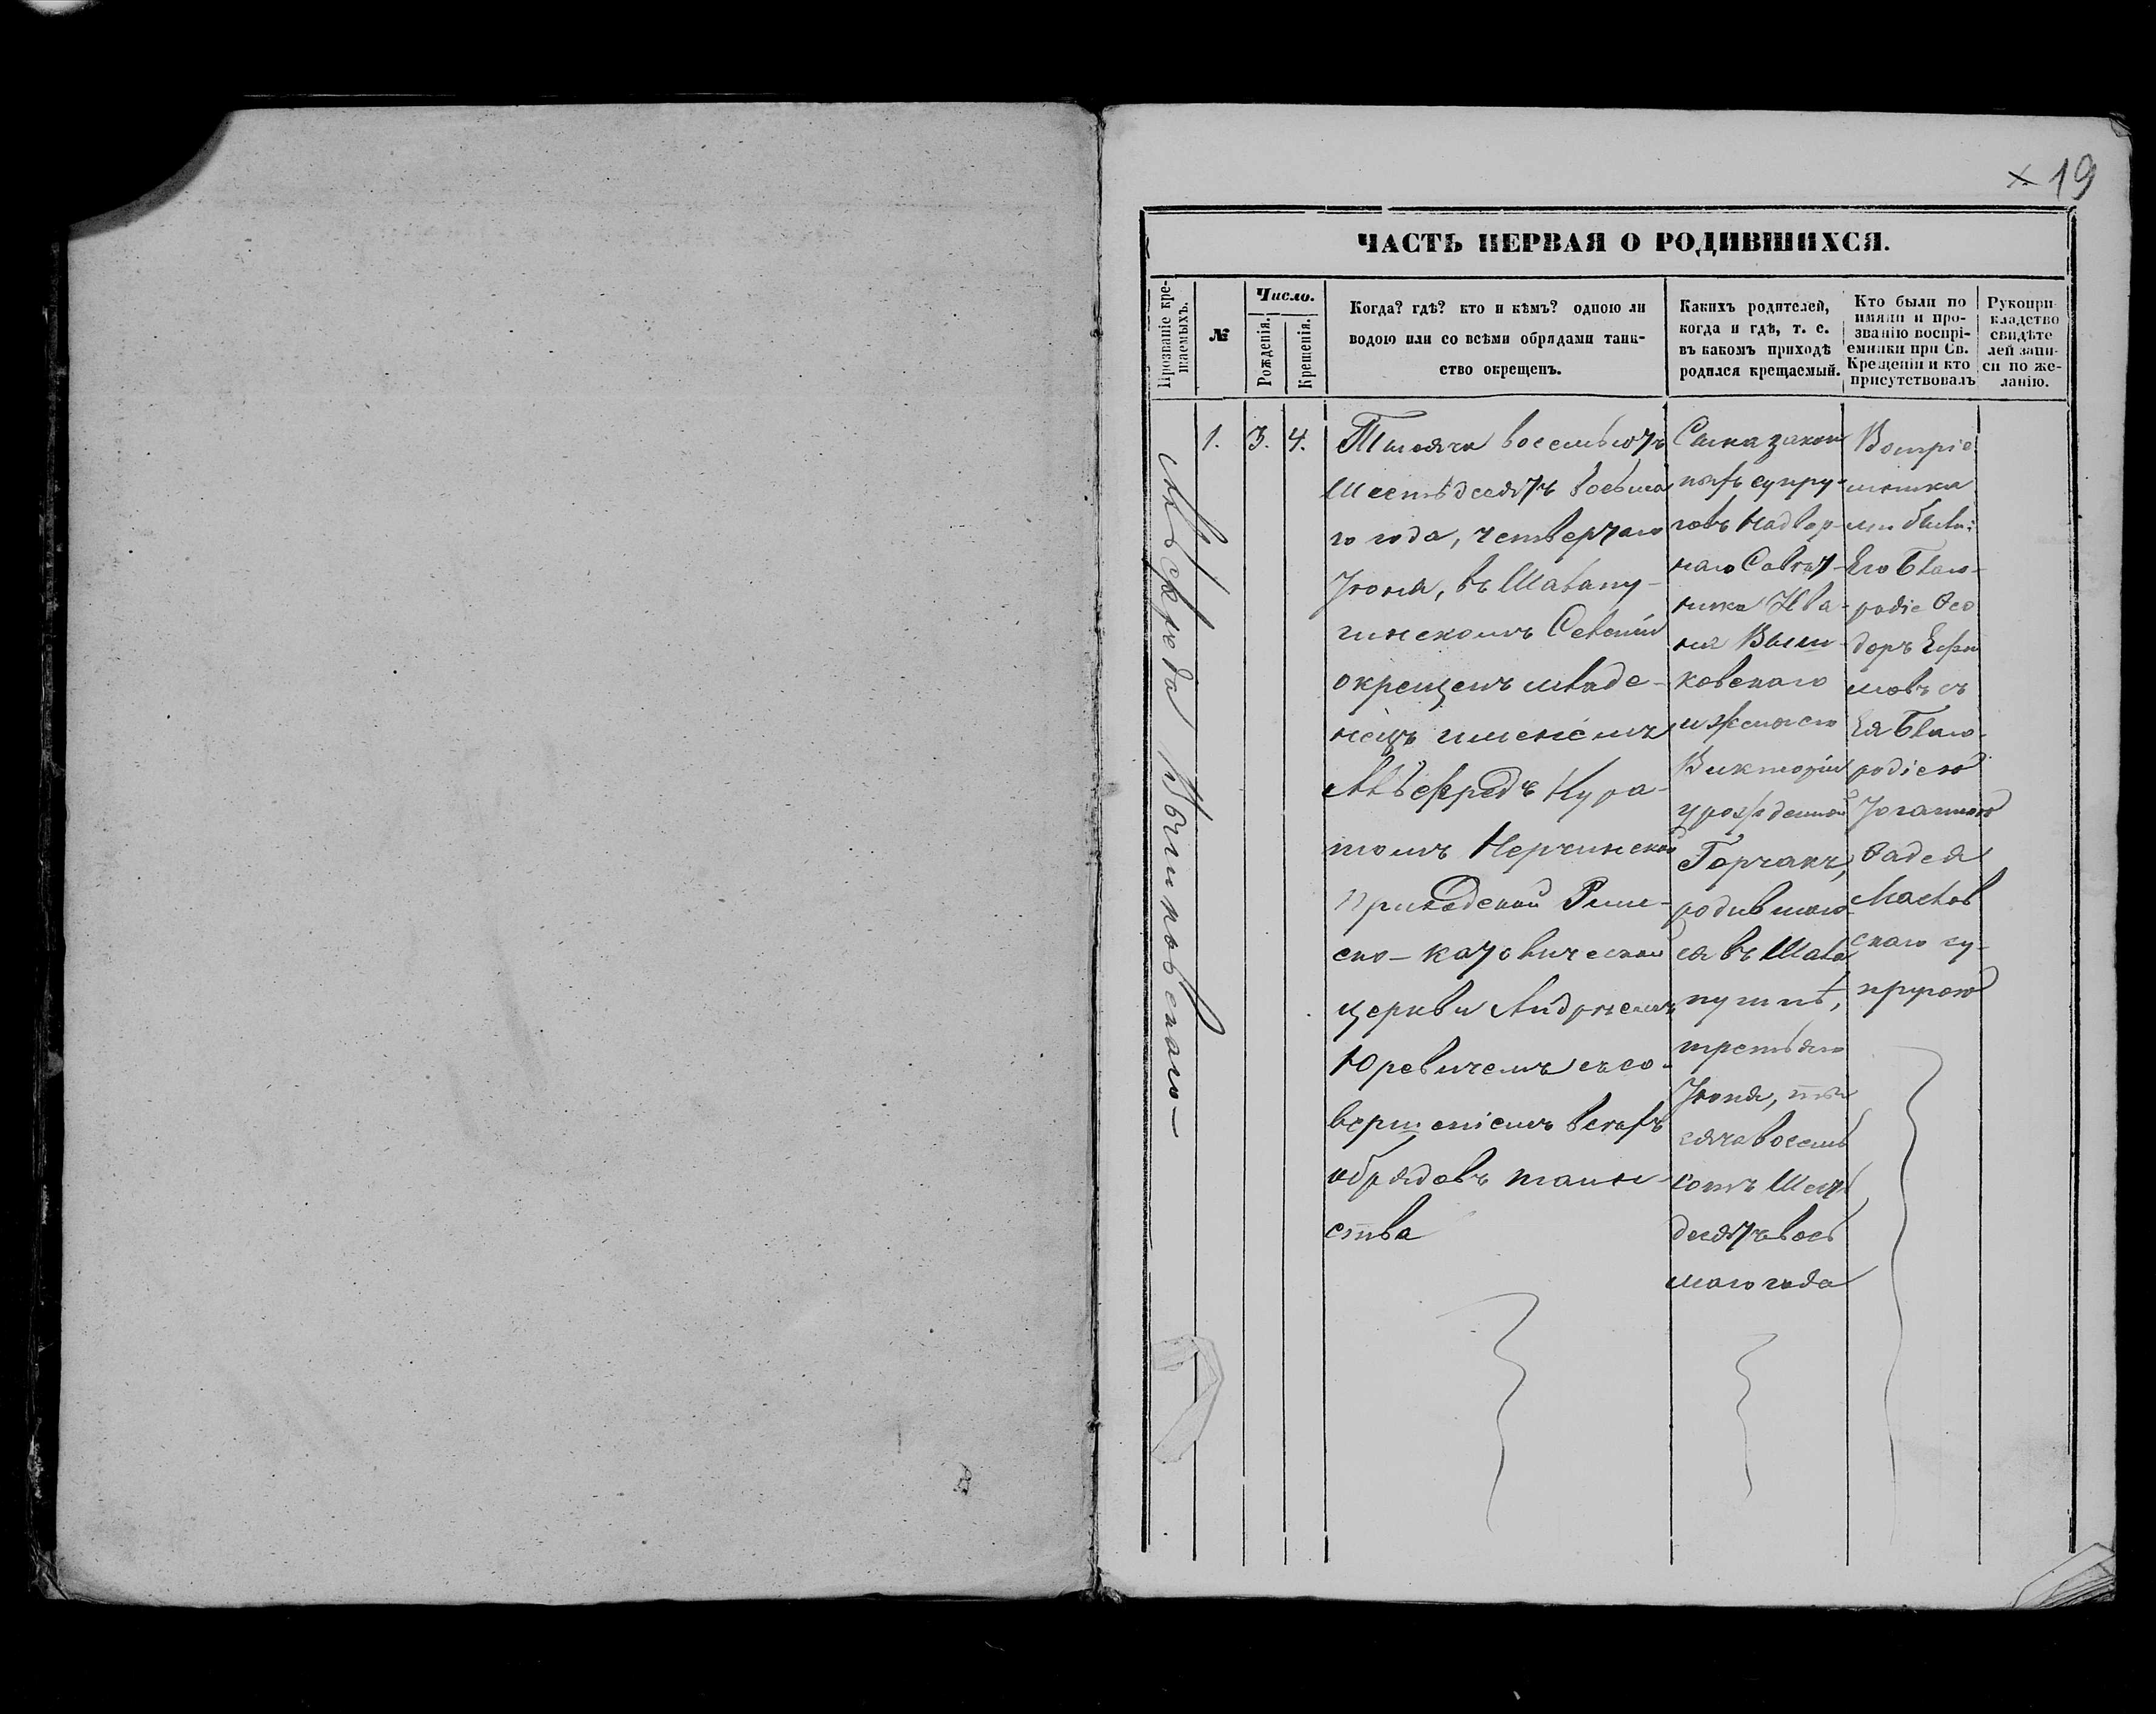 19
ЧАСТЬ ПЕРВАЯ О РОДИВШИХСЯ.
Прозваніе кре-
щаемыхъ.
№
Число.
Рожденія.
Крещенія.
Когда? гдѣ? кто и кѣмъ? одною ли
водою или со всѣми обрядами таин-
ство окрещенъ.
Какихъ родителей,
когда и гдѣ, т. е.
въ какомъ приходѣ
родился крещаемый.
Кто были по
имяни и про-
званію воспрі-
емники при Св.
Крещеніи и кто
присутствовалъ
Рукопри-
кладство
свидѣте
лей запи-
си по же-
ланію.
Альфреда Вышковскаго
1.
3.
4.
Тысяча восемьсотъ
шестьдесятъ восьма
го года, четвертаго
Іюня, въ Шалапу-
гинскомъ Селеніи
окрещенъ младе-
нецъ именемъ
Альфредъ Кура-
томъ Нерчинской
Приходской Рим-
ско-католической
церкви Андреемъ
Юревичемъ съ со-
вершеніемъ всехъ
обрядовъ таин-
ства
Сына закон
ныхъ супру-
говъ Надвор-
наго Совѣт-
ника Ива-
на Выш-
ковскаго
и жены его
Викторіи
урожденной
Горчакъ,
родившаго
ся въ Шала
пугинѣ,
третьяго
Іюня, ты
сяча восемь
сотъ шесть
десятъ вось
маго года
Воспріе
мника
ми были:
Его Благо-
родіе Ѳео
доръ Ефи
мовъ съ
Ея Благо-
родіею
Іоганною
Ѳадея
Маслов
скаго су-
пругою